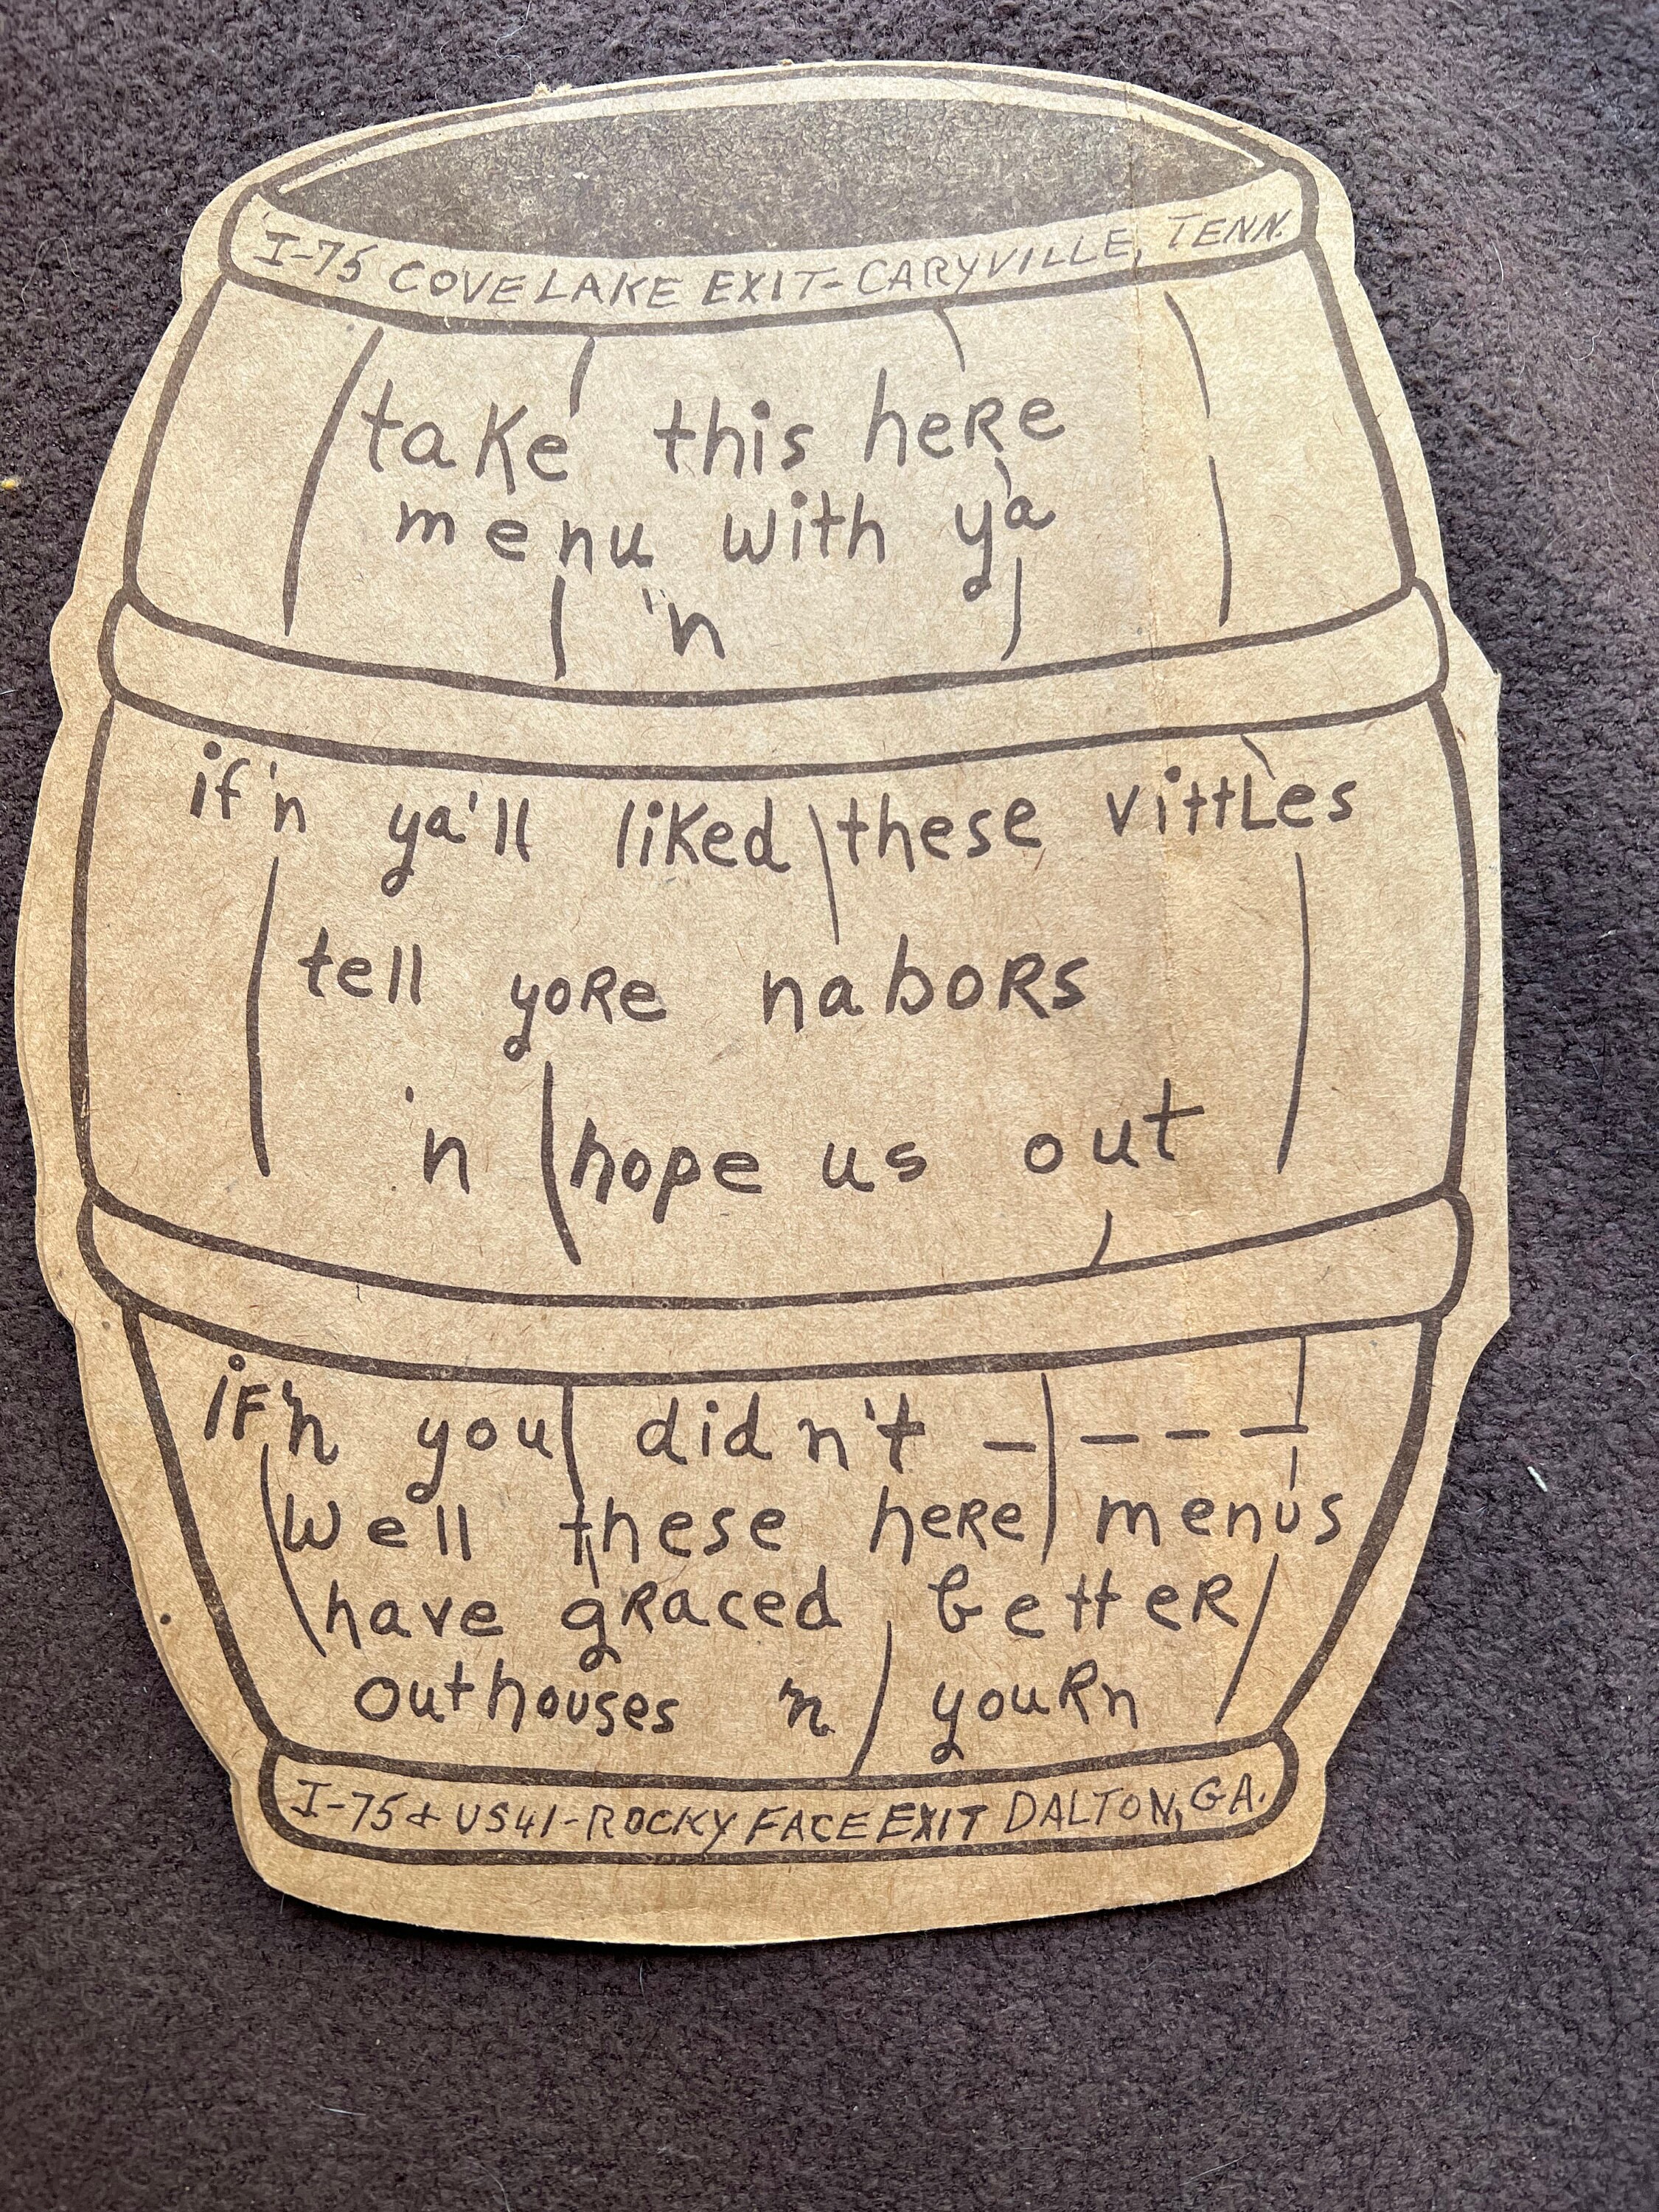 I-75 COVE LAKE EXIT-CARYVILLE, TENN.
take this here
menu with ya
'n
if'n ya'll liked these vittles
tell yore nabors
'n hope us out
if'n you didn't - - - -
well these here menus
have graced better
outhouses 'n yourn
I-75 & US41-ROCKY FACE EXIT DALTON, GA.